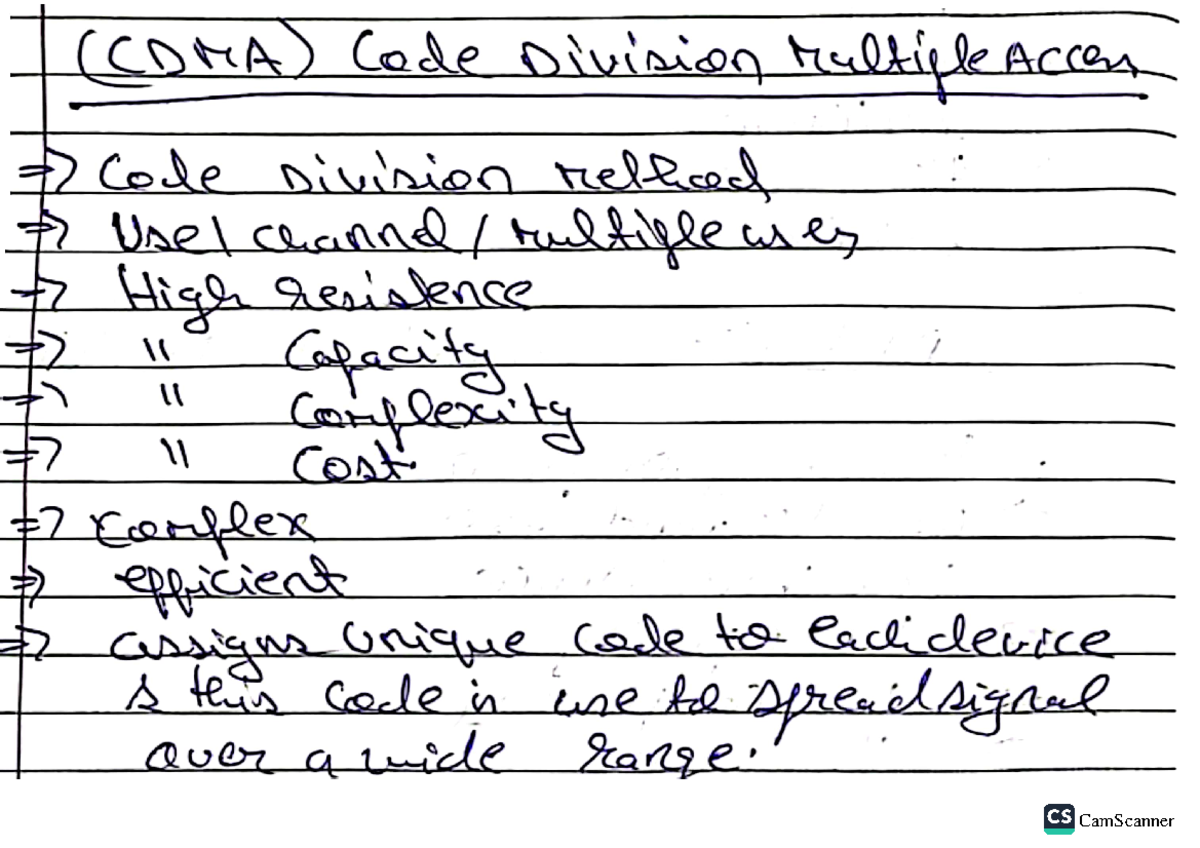 (CDMA) Code Division Multiple Access
=> Code Division Method
=> Use 1 channel / multiple uses
=> High resistence
=> " Capacity
=> " Complexity
=> " Cost.
=> Complex
=> efficient
=> assigns Unique code to Each device
& this code is use to spread signal
over a wide range.
CS CamScanner